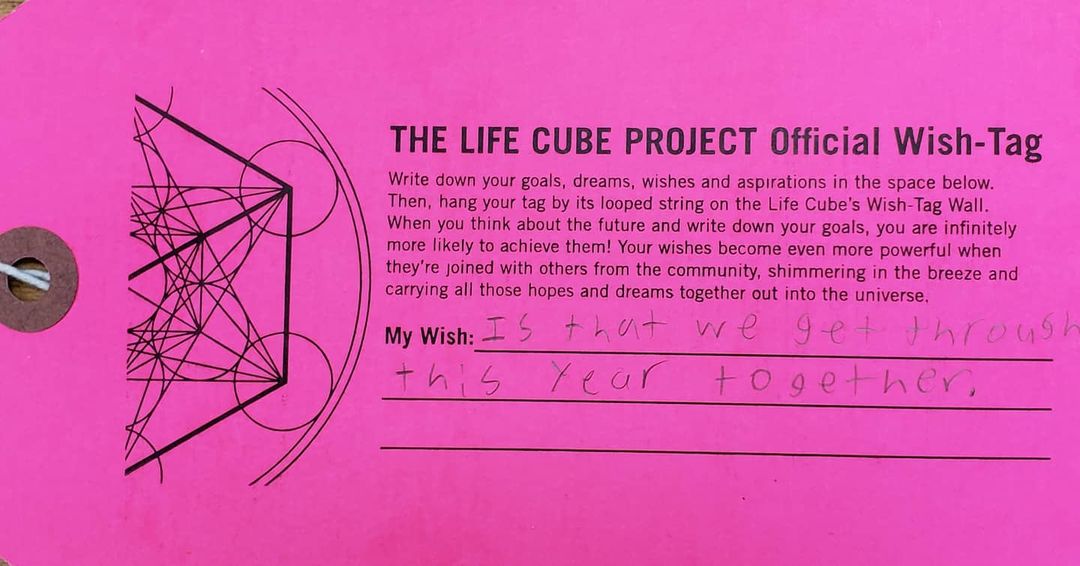 THE LIFE CUBE PROJECT Official Wish-Tag
Write down your goals, dreams, wishes and aspirations in the space below.
Then, hang your tag by its looped string on the Life Cube's Wish-Tag Wall.
When you think about the future and write down your goals, you are infinitely
more likely to achieve them! Your wishes become even more powerful when
they're joined with others from the community, shimmering in the breeze and
carrying all those hopes and dreams together out into the universe.
My Wish: Is that we get through
this Year together.